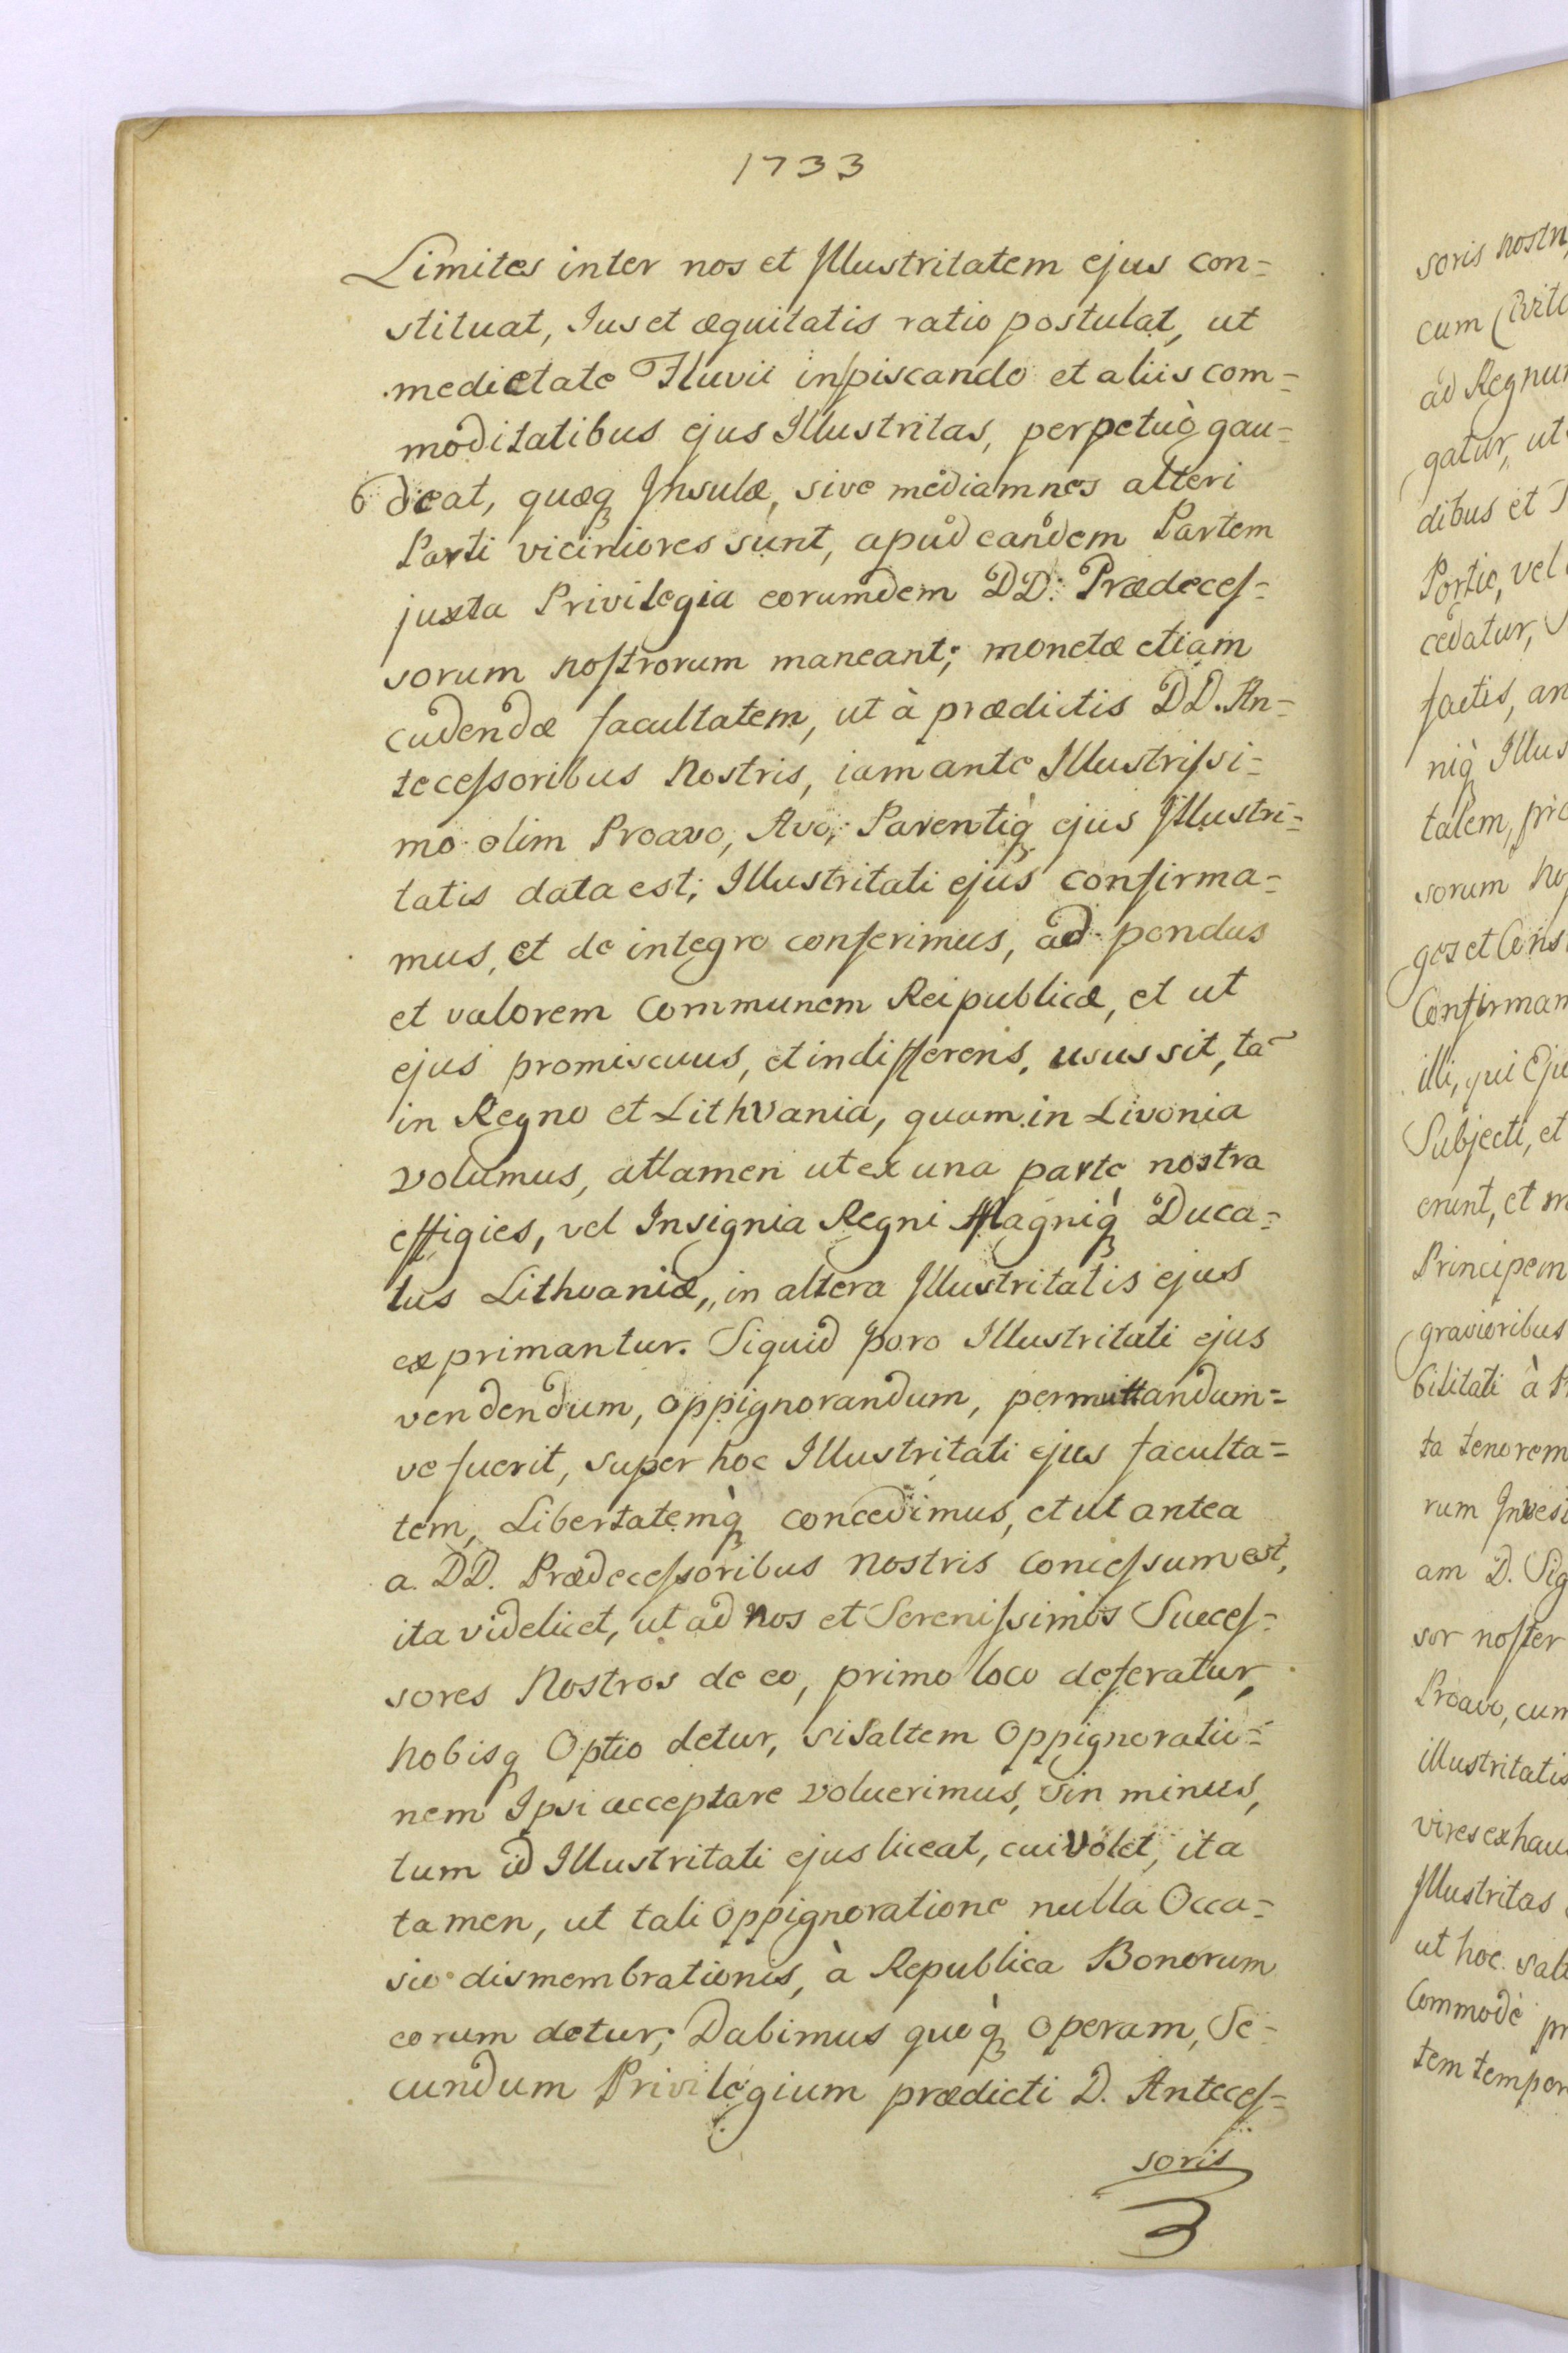 1733
Limites inter nos et Illustritatem ejus con=
stituat, Jus et æquitatis ratio postulat, ut
medietate Fluvii in piscando et aliis com=
moditatibus ejus Illustritas, perpetuò gau=
deat, quæq Insulæ, sive mediamnes alteri
Parti viciniores sunt, apud eandem Partem
juxta Privilegia eorumdem DD: Prædeces=
sorum nostrorum maneant; monetæ etiam
cudendæ facultatem, ut à prædictis DD. An=
tecessoribus Nostris, iam ante Illustrissi=
mo olim Proavo, Avo, Parentiq ejus Illustri=
tatis data est; Illustritati ejus confirma=
mus, et de integro conferimus, ad pondus
et valorem communem Reipublicæ, et ut
ejus promiscuus, et indifferens, usus sit, tã
in Regno et Lithvania, quam in Livonia
volumus, attamen ut ex una parte nostra
effigies, vel Insignia Regni Magniq̀ Duca=
tus Lithvaniæ, in altera Illustritatis ejus
exprimantur. Siquid poro Illustritati ejus
vendendum, oppignorandum, permuttandum=
ve fuerit, super hoc Illustritati ejus faculta=
tem, Libertatemq̀ concedimus, et ut antea
a. DD. Prædecessoribus nostris concessum est,
ita videlicet, ut ad nos et Serenissimos Succes=
sores Nostros de eo, primo loco deferatur,
nobisq Optio detur, si saltem Oppignoratio=
nem Ipsi acceptare voluerimus, sin minus,
tum id Illustritati ejus liceat, cui volet, ita
tamen, ut tali oppignoratione nulla Occa=
sio dismembrationis, à Republica Bonorum
eorum detur; Dabimus quoq̀ operam, Se=
cundum Privilegium prædicti D. Anteces=
soris
soris nostri
cum
ad Regnum
gatur, ut
dibus et
Portio, vel
cedatur,
factis, an
niq̀ Illus
talem, pro
sorum no
ges et Cons
Confirmam
illi, qui Eju
Subjecti, et
erunt, et m
Principem
gravioribus
bilitati à P
ta tenorem
rum Invest
am D. Sig
sor noster
Proavo, cum
illustritatis
vires exhau
Illustritas
ut hoc salt
Commodè pr
tem tempor